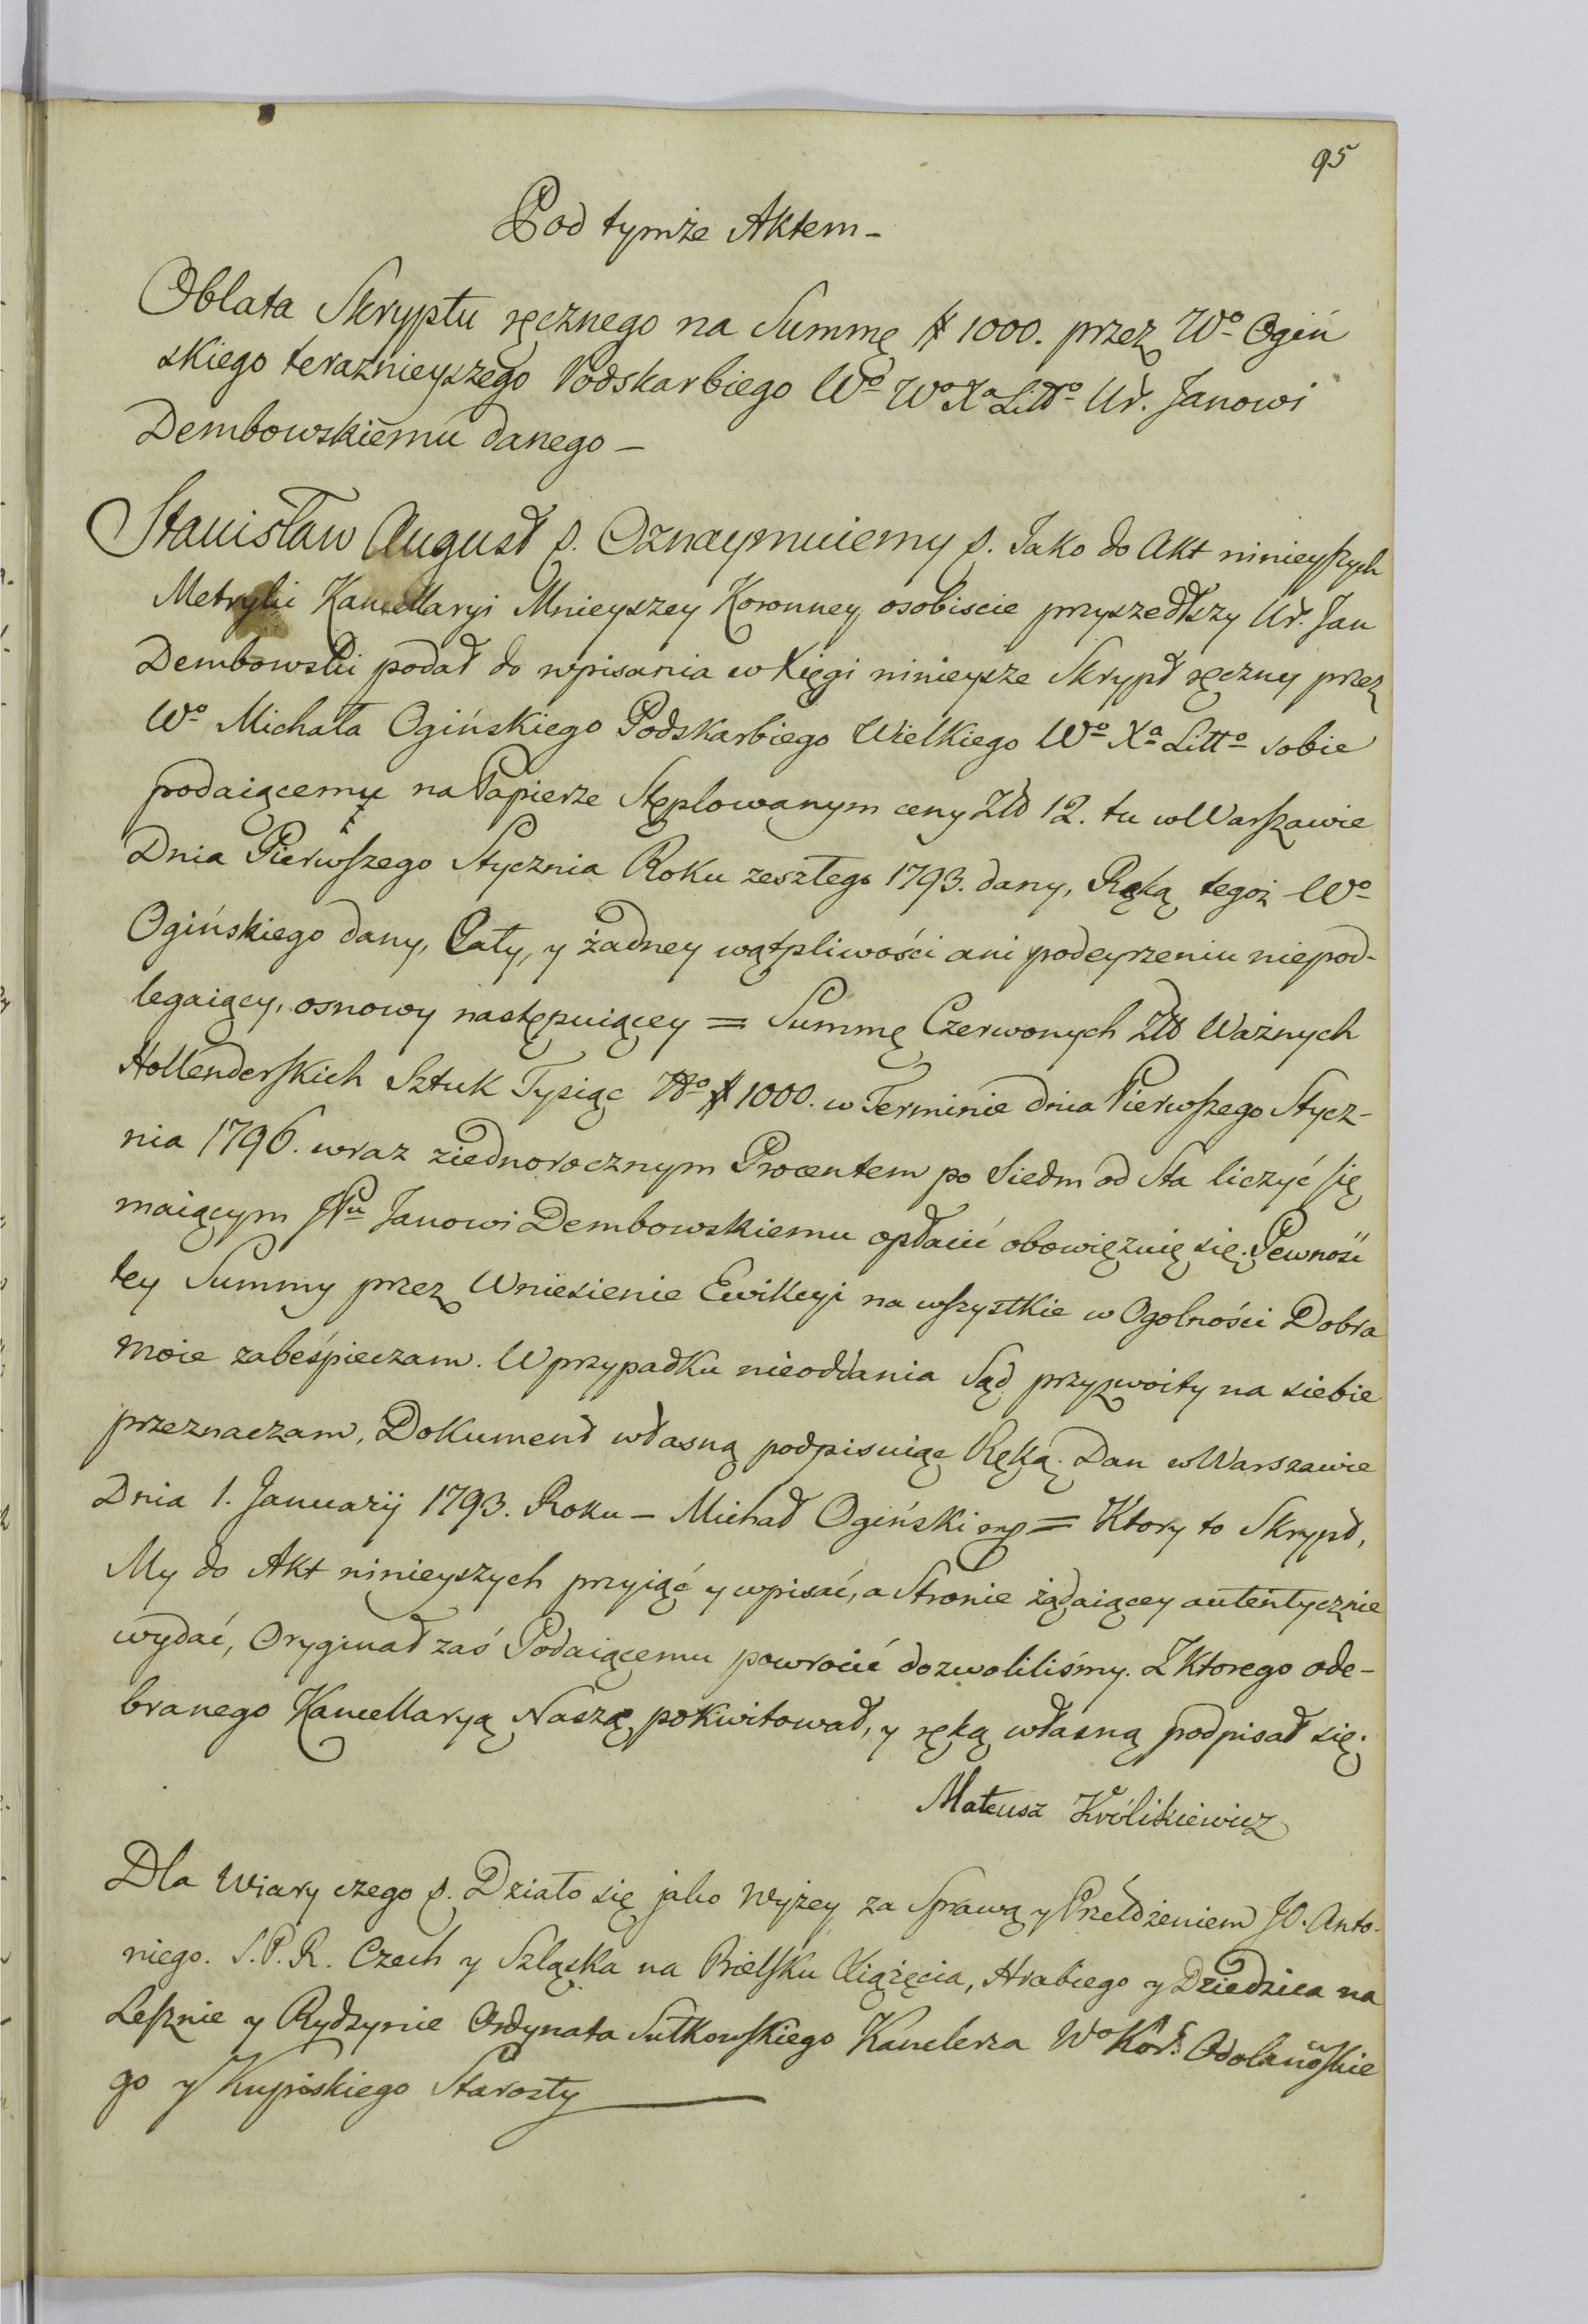 95
Pod tymże Aktem -
Oblata Skryptu ręcznego na Summę # 1000. przez Wo Ogiń
skiego teraznieyszego Podskarbiego Wo Wo Xa Litto Ur. Janowi
Dembowskiemu danego -
Stanisław August p. Oznaymuiemy p. Jako do Akt ninieyszych
Metryki Kancellaryi Mnieyszey Koronney osobiscie przyszedłszy Ur. Jan
Dembowski podał do wpisania w Xięgi ninieysze Skrypt ręczny przez
Wo Michała Ogińskiego Podskarbiego Wielkiego Wo Xa Litto sobie
podaiącemu na Papierze Stęplowanym ceny Złt 12. tu w Warszawie
Dnia Pierwszego Stycznia Roku zeszłego 1793. dany, Ręką tegoż Wo
Ogińskiego dany, Cały, y żadney wątpliwości ani podeyrzeniu niepod-
legaiący, osnowy następuiącey = Summę Czerwonych Złt Ważnych
Hollenderskich Sztuk Tysiąc No # 1000. w Terminie dnia Pierwszego Stycz-
nia 1796. wraz ziednorocznym Procentem po Siedm od Sta liczyć się
maiącym JPu Janowi Dembowskiemu opłacić obowięzuię się. Pewność
tey Summy przez Wniesienie Ewikcyi na wszystkie w Ogolności Dobra
moie zabeśpieczam. W przypadku nieoddania Sąd przyzwoity na siebie
przeznaczam, Dokument własną podpisuiąc Ręką. Dan w Warszawie
Dnia 1. Januarij 1793. Roku - Michał Ogiński mp = Ktory to Skrypt,
My do Akt ninieyszych przyiąć y wpisać, a Stronie żądaiącey autentycznie
wydać, Oryginał zaś Podaiącemu powrocić dozwoliliśmy. Z Ktorego ode-
branego Kancellaryą Naszą pokwitował, y ręką własną podpisał się.
Mateusz Królikiewicz
Dla Wiary czego p. Działo się jako Wyżey za Sprawą y Przełdżeniem JO. Anto-
niego. S.P.R. Czech y Szląska na Bielsku Xiążęcia, Hrabiego y Dziedzica na
Lesznie y Rydzynie Ordynata Sułkowskiego Kanclerza Wo Kor: Odolanowskie
go y Kupiskiego Starosty